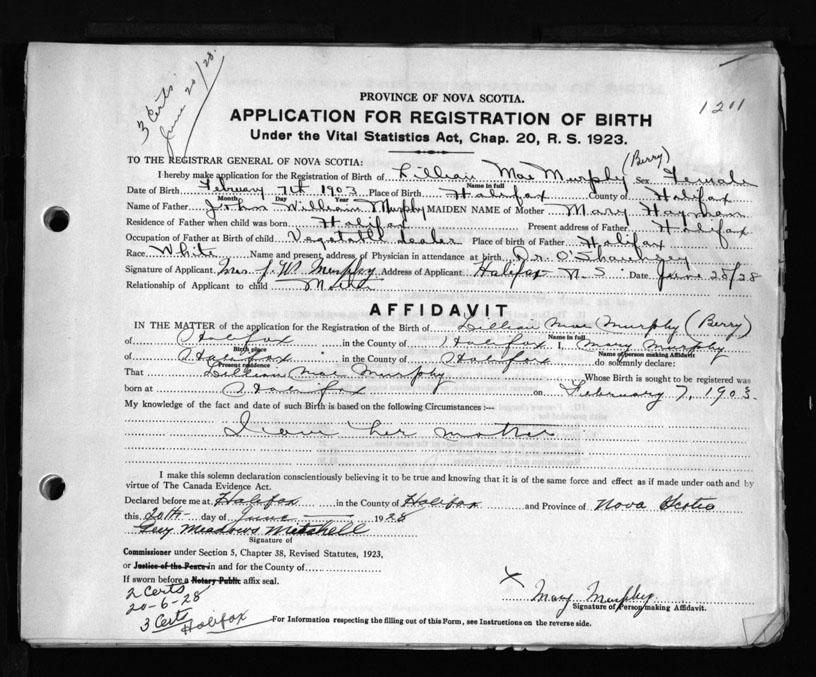 3 Certs.
June 20/28.
1211
PROVINCE OF NOVA SCOTIA.
APPLICATION FOR REGISTRATION OF BIRTH
Under the Vital Statistics Act, Chap. 20, R. S. 1923.
TO THE REGISTRAR GENERAL OF NOVA SCOTIA:
(Berry)
I hereby make application for the Registration of Birth of Lillian Mae Murphy Sex Female
Name in full
Date of Birth February 7th 1903 Place of Birth Halifax County of Halifax
Month Day Year
Name of Father John William Murphy MAIDEN NAME of Mother Mary Hayman
Residence of Father when child was born Halifax Present address of Father Halifax
Occupation of Father at Birth of child Vegetable dealer Place of birth of Father Halifax
Race White Name and present address of Physician in attendance at birth Dr. O'Shaughnessy
Signature of Applicant Mrs. J. W. Murphy Address of Applicant Halifax N. S. Date June 20/28
Relationship of Applicant to child Mother
AFFIDAVIT
IN THE MATTER of the application for the Registration of the Birth of Lillian Mae Murphy (Berry)
Name in full
of Halifax in the County of Halifax I, Mary Murphy
Birth place Name of person making Affidavit
of Halifax in the County of Halifax do solemnly declare:
Present residence
That Lillian Mae Murphy Whose Birth is sought to be registered was
born at Halifax on February 7, 1903.
My knowledge of the fact and date of such Birth is based on the following Circumstances :—
I am her mother
I make this solemn declaration conscientiously believing it to be true and knowing that it is of the same force and effect as if made under oath and by
virtue of The Canada Evidence Act.
Declared before me at Halifax in the County of Halifax and Province of Nova Scotia
this 20th day of June 1928
Meadows Mitchell
Signature of
Commissioner under Section 5, Chapter 38, Revised Statutes, 1923,
or Justice of the Peace in and for the County of
If sworn before a Notary Public affix seal.
2 Certs
20-6-28
3 Certs
Halifax
X Mary Murphy
Signature of Person making Affidavit.
For Information respecting the filling out of this Form, see Instructions on the reverse side.